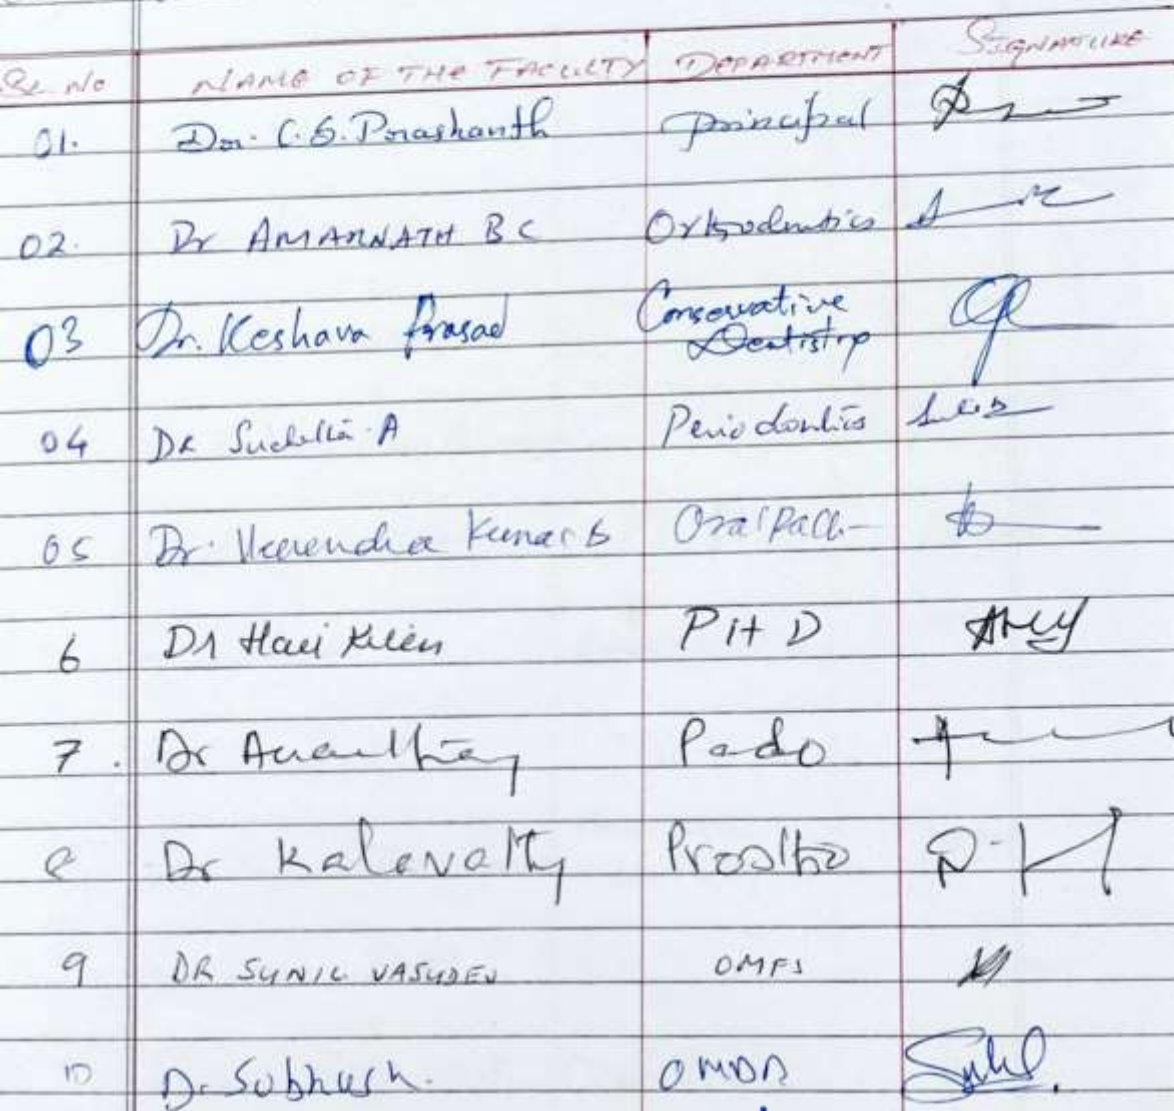 Sl. No NAME OF THE FACULTY DEPARTMENT SIGNATURE
01. Dr. C.S. Prashanth principal
02. Dr AMARNATH B C Orthodontics
03 Dr. Keshava Prasad Conservative
Dentistry
04 Dr A Periodontics
05 Dr. Veerendra Kumar B Oral Path
6 Dr Hari PHD
7. Dr Pedo
8 Dr Kalavathy Prostho
9 DR SUNIL VASUDEV OMFS
10 Dr Subhash. OMDR